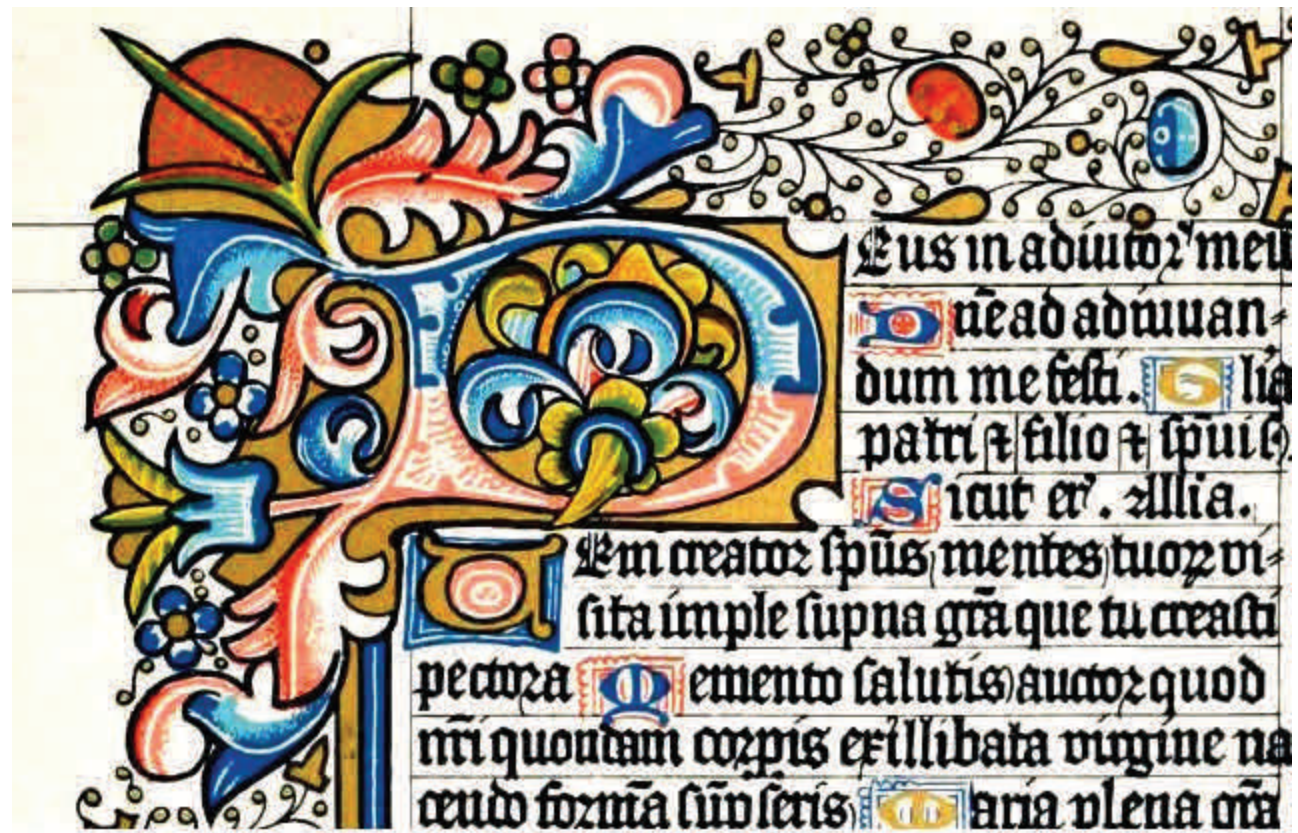 DEus in adiutoꝝ meu
Dn̄e ad adiuuan=
dum me festi. Glia
patri ⁊ filio ⁊ sp̄ui s
Sicut er̾. Allia.
VEni creator sp̄us mentes tuoꝝ vi=
sita imple supna gr̄a que tu creasti
pectora Memento salutis auctor quod
nr̄i quondam corpis ex illibata virgine na
cendo formā sūpseris Maria plena grā